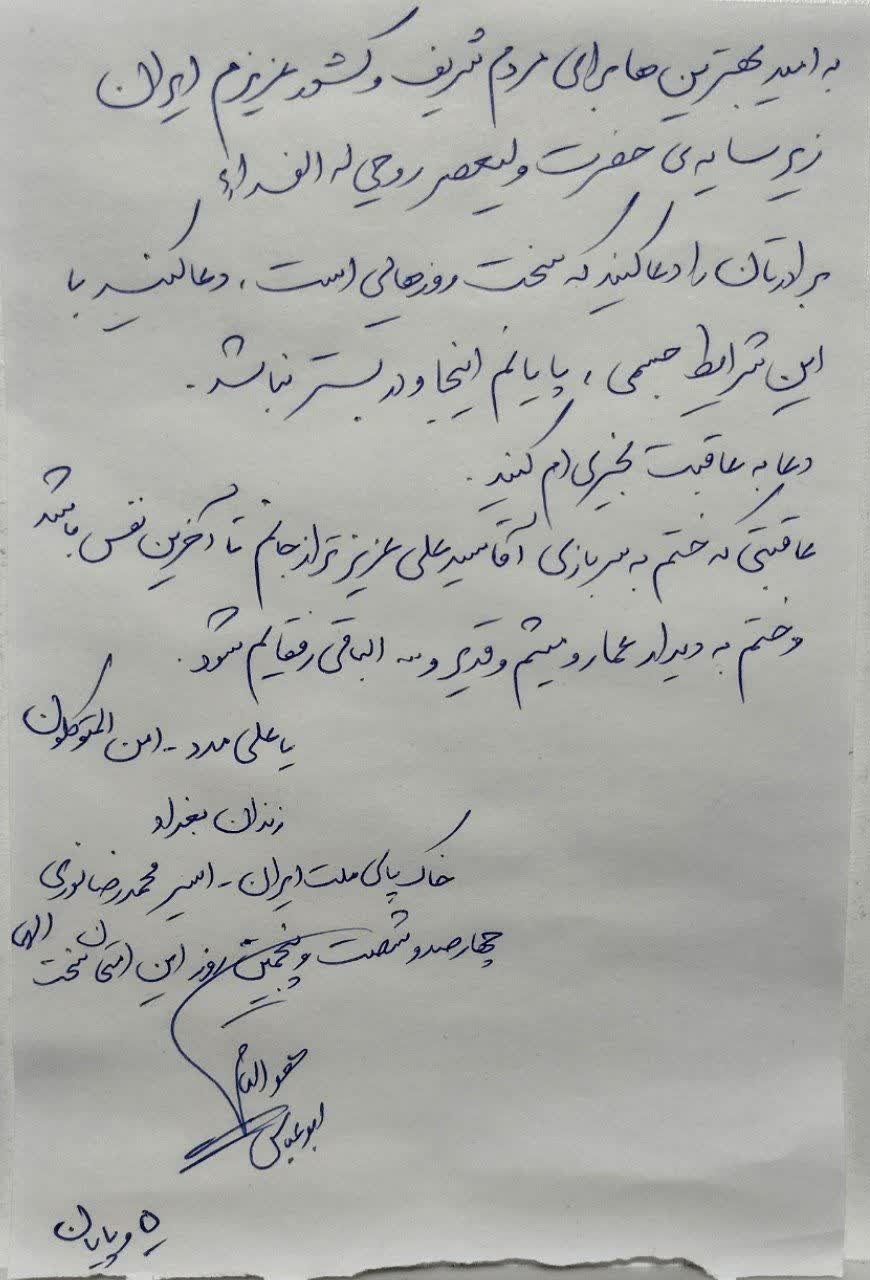 به امید بهترین ها برای مردم شریف و کشور عزیزم ایران
زیر سایه ی حضرت ولیعصر روحی له الفداء
برادرتان را دعا کنید که سخت روزهایی است، دعا کنید با
این شرایط جسمی، پایانم اینجا و در بستر نباشد.
دعا به عاقبت بخیری ام کنید.
عاقبتی که ختم به سربازی آقا سید علی عزیز تر از جانم تا آخرین نفس باشد
و ختم به دیدار عمار و میثم و قدیر و الباقی رفقایم شود.
یا علی مدد - این المتوکلون
زندان بغداد
خاک پای ملت ایران - اسیر محمدرضا نوری
چهارصد و شصت و پنجمین روز این امتحان سخت الهی
هو
ابوعباس
۵ و پایان